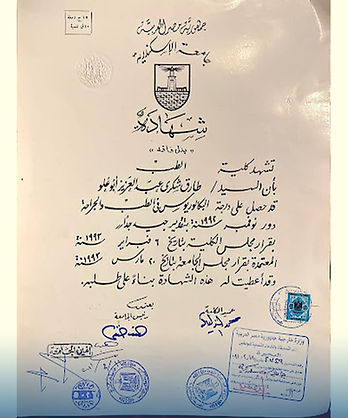 جمهورية مصر العربية
جامعة الإسكندرية
شهادة
« بدل فاقد »
تشهد كلية الطب
بأن السيد / طارق شكرى عبد العزيز أبو علو
قد حصل على درجة البكالوريوس فى الطب والجراحة
دور نوفمبر ١٩٩٢ بتقدير جيد جدا
بقرار مجلس الكلية بتاريخ ٦ فبراير سنة ١٩٩٣
المعتمدة بقرار مجلس الجامعة بتاريخ ٢٠ مارس سنة ١٩٩٣
وقد أعطيت له هذه الشهادة بناء على طلبه.
عميد الكلية
يعتمد
رئيس الجامعة
أمين الجامعة
وزارة خارجية جمهورية مصر العربية